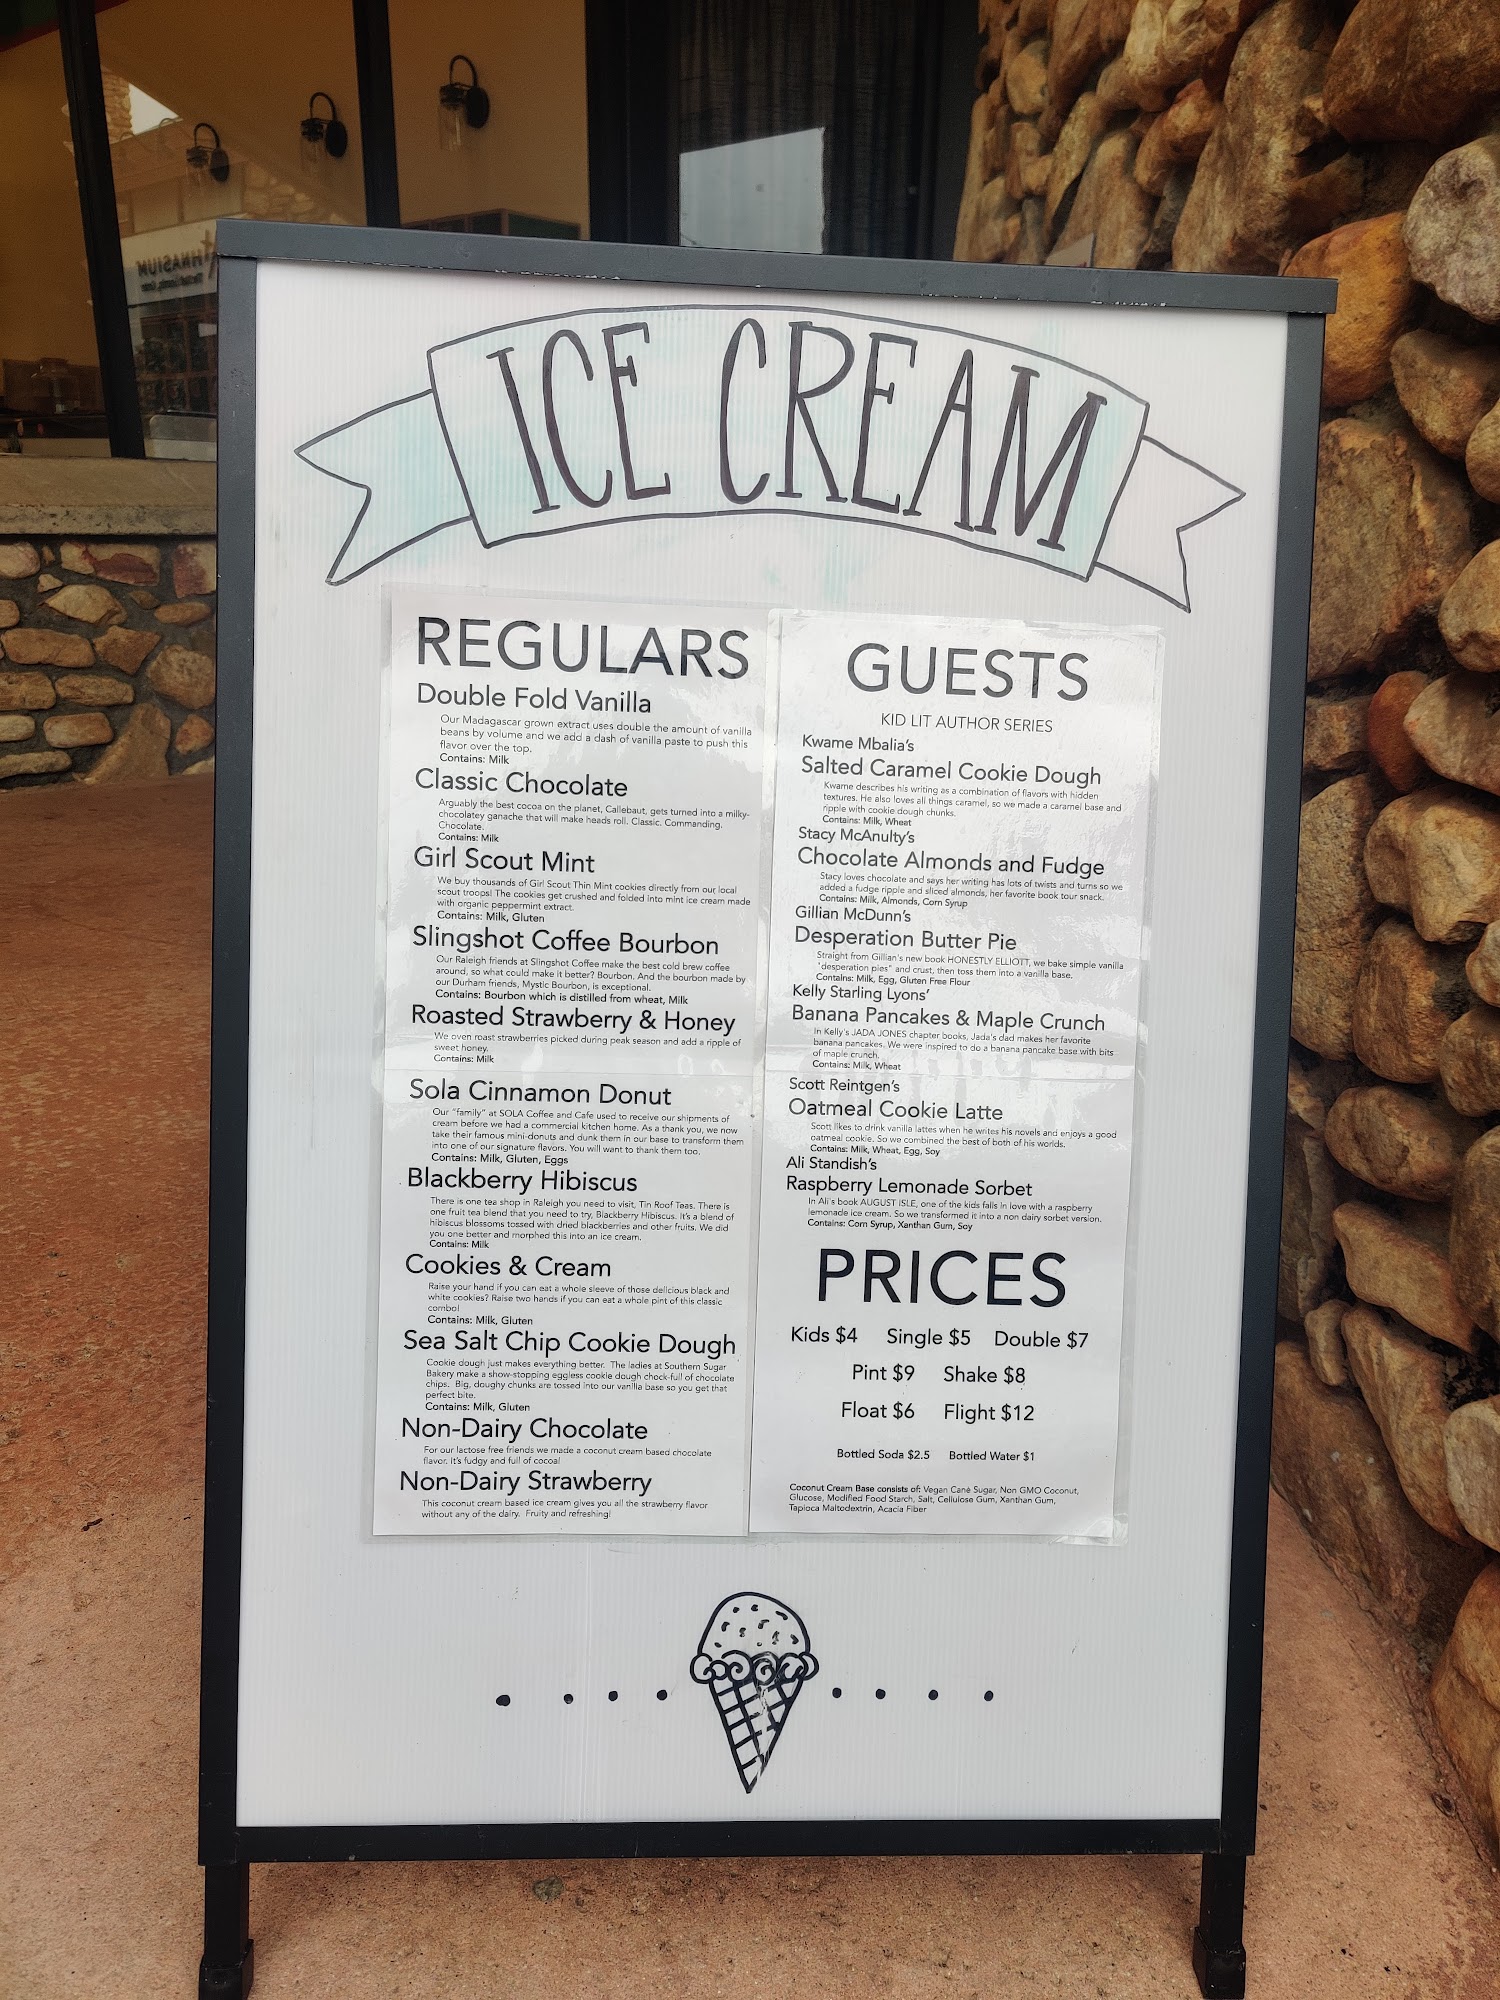 ICE CREAM
REGULARS
Double Fold Vanilla
Our Madagascar grown extract uses double the amount of vanilla
beans by volume and we add a dash of vanilla paste to push this
flavor over the top.
Contains: Milk
Classic Chocolate
Arguably the best cocoa on the planet, Callebaut, gets turned into a milky-
chocolatey ganache that will make heads roll. Classic. Commanding.
Chocolate.
Contains: Milk
Girl Scout Mint
We buy thousands of Girl Scout Thin Mint cookies directly from our local
scout troops! The cookies get crushed and folded into mint ice cream made
with organic peppermint extract.
Contains: Milk, Gluten
Slingshot Coffee Bourbon
Our Raleigh friends at Slingshot Coffee make the best cold brew coffee
around, so what could make it better? Bourbon. And the bourbon made by
our Durham friends, Mystic Bourbon, is exceptional.
Contains: Bourbon which is distilled from wheat, Milk
Roasted Strawberry & Honey
We oven roast strawberries picked during peak season and add a ripple of
sweet honey.
Contains: Milk
Sola Cinnamon Donut
Our "family" at SOLA Coffee and Cafe used to receive our shipments of
cream before we had a commercial kitchen home. As a thank you, we now
take their famous mini-donuts and dunk them in our base to transform them
into one of our signature flavors. You will want to thank them too.
Contains: Milk, Gluten, Eggs
Blackberry Hibiscus
There is one tea shop in Raleigh you need to visit, Tin Roof Teas. There is
one fruit tea blend that you need to try, Blackberry Hibiscus. It's a blend of
hibiscus blossoms tossed with dried blackberries and other fruits. We did
you one better and morphed this into an ice cream.
Contains: Milk
Cookies & Cream
Raise your hand if you can eat a whole sleeve of those delicious black and
white cookies? Raise two hands if you can eat a whole pint of this classic
combo!
Contains: Milk, Gluten
Sea Salt Chip Cookie Dough
Cookie dough just makes everything better. The ladies at Southern Sugar
Bakery make a show-stopping eggless cookie dough chock-full of chocolate
chips. Big, doughy chunks are tossed into our vanilla base so you get that
perfect bite.
Contains: Milk, Gluten
Non-Dairy Chocolate
For our lactose free friends we made a coconut cream based chocolate
flavor. It's fudgy and full of cocoa!
Non-Dairy Strawberry
This coconut cream based ice cream gives you all the strawberry flavor
without any of the dairy. Fruity and refreshing!
GUESTS
KID LIT AUTHOR SERIES
Kwame Mbalia's
Salted Caramel Cookie Dough
Kwame describes his writing as a combination of flavors with hidden
textures. He also loves all things caramel, so we made a caramel base and
ripple with cookie dough chunks.
Contains: Milk, Wheat
Stacy McAnulty's
Chocolate Almonds and Fudge
Stacy loves chocolate and says her writing has lots of twists and turns so we
added a fudge ripple and sliced almonds, her favorite book tour snack.
Contains: Milk, Almonds, Corn Syrup
Gillian McDunn's
Desperation Butter Pie
Straight from Gillian's new book HONESTLY ELLIOTT, we bake simple vanilla
"desperation pies" and crust, then toss them into a vanilla base.
Contains: Milk, Egg, Gluten Free Flour
Kelly Starling Lyons'
Banana Pancakes & Maple Crunch
In Kelly's JADA JONES chapter books, Jada's dad makes her favorite
banana pancakes. We were inspired to do a banana pancake base with bits
of maple crunch.
Contains: Milk, Wheat
Scott Reintgen's
Oatmeal Cookie Latte
Scott likes to drink vanilla lattes when he writes his novels and enjoys a good
oatmeal cookie. So we combined the best of both of his worlds.
Contains: Milk, Wheat, Egg, Soy
Ali Standish's
Raspberry Lemonade Sorbet
In Ali's book AUGUST ISLE, one of the kids falls in love with a raspberry
lemonade ice cream. So we transformed it into a non dairy sorbet version.
Contains: Corn Syrup, Xanthan Gum, Soy
PRICES
Kids $4 Single $5 Double $7
Pint $9 Shake $8
Float $6 Flight $12
Bottled Soda $2.5 Bottled Water $1
Coconut Cream Base consists of: Vegan Cane Sugar, Non GMO Coconut,
Glucose, Modified Food Starch, Salt, Cellulose Gum, Xanthan Gum,
Tapioca Maltodextrin, Acacia Fiber